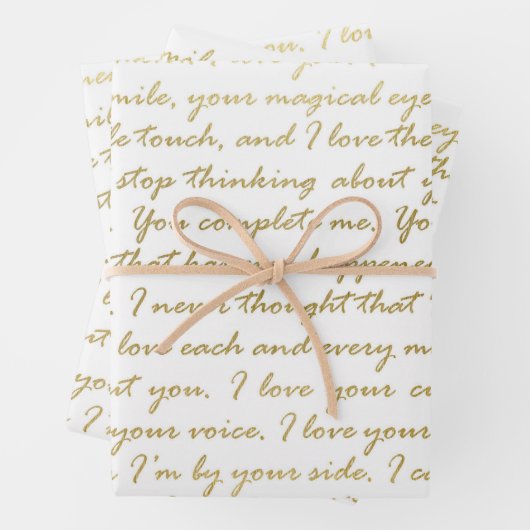 you. I love
mile, your magical eye
le touch, and I love the
stop thinking about y
. You complete me. Yo
that happened
. I never thought that
love each and every m
out you. I love your cu
I your voice. I love your
I'm by your side. I ca